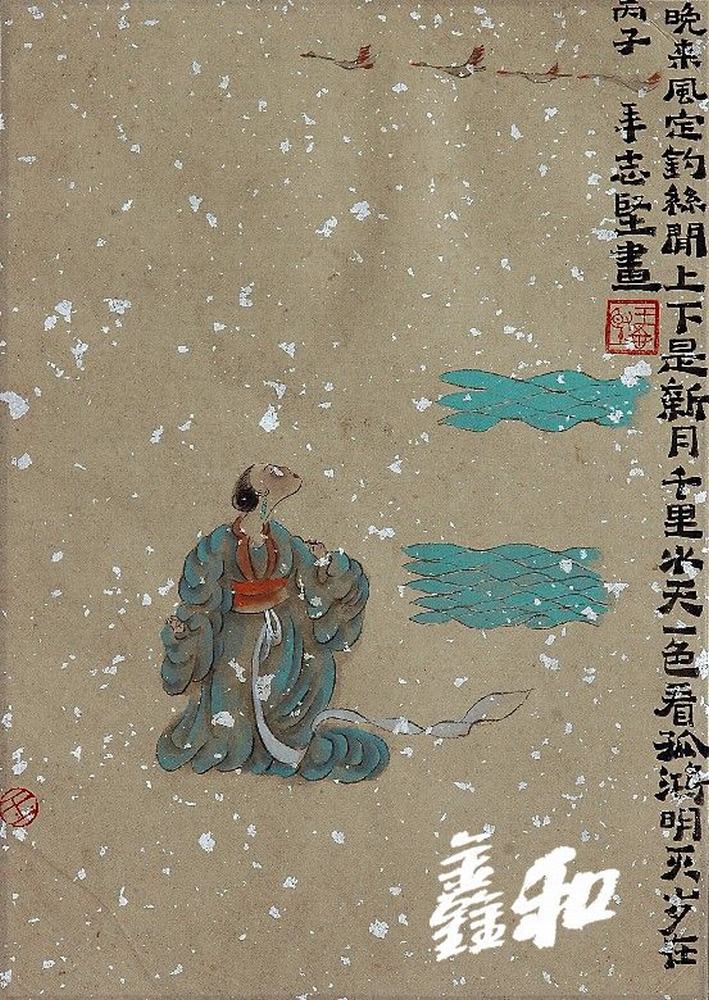 晚来風定釣絲閒上下是新月千里水天一色看孤鴻明灭岁在
丙子年志堅畫
鑫和